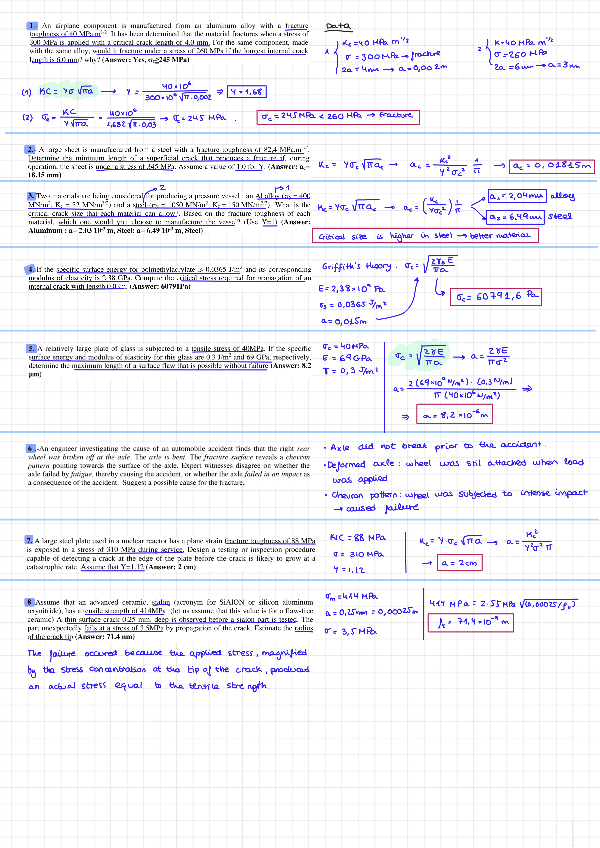 1.- An airplane component is manufactured from an aluminum alloy with a fracture
toughness of 40 MPa.m^1/2. It has been determined that the material fractures when a stress of
300 MPa is applied with a critical crack length of 4.0 mm. For the same component, made
with the same alloy, would it fracture under a stress of 260 MPa if the longest internal crack
length is 6.0 mm? why? (Answer: Yes, σc≥245 MPa)
Data
1
Kc=40 MPa m^1/2
σ = 300 MPa → fracture
2a = 4mm → a = 0,002m
2
K=40 MPa m^1/2
σ = 260 MPa
2a = 6mm → a = 3mm
(1) KC = Yσ√πa → Y = 40×10⁶ / 300×10⁶ √π·0,002 ⇒ Y = 1,68
(2) σc = KC / Y√πa = 40×10⁶ / 1,682 √π·0,03 → σc = 245 MPa. σc = 245 MPa < 260 MPa → fracture
2.- A large sheet is manufactured from a steel with a fracture toughness of 82,4 MPa.m^1/2.
Determine the minimum length of a superficial crack that produces a fracture if, during
operation, the sheet is under a stress of 345 MPa. Assume a value of 1.0 for Y. (Answer: ac=
18.15 mm)
Kc = Yσc √πac → ac = Kc² / Y²σc² 1/π → ac = 0,01815m
3. Two materials are being considered for producing a pressure vessel: an Al alloy (σy = 400
MN/m², Kc = 32 MN/m^3/2) and a steel (σy = 1050 MN/m², Kc = 150 MN/m^3/2). What is the
critical crack size that each material can allow? Based on the fracture toughness of each
material, which one would you choose to manufacture the vessel? (Use Y=1) (Answer:
Aluminum : a= 2.03 10⁻³ m, Steel: a= 6.49 10⁻³ m, Steel)
Kc = Yσc √πac → ac = (Kc / Yσc)² 1/π
a₁ = 2,04mm alloy
a₂ = 6,49mm steel
Critical size is higher in steel → better material
4. If the specific surface energy for polymethylacrylate is 0.0365 J/m² and its corresponding
modulus of elasticity is 2.38 GPa. Compute the critical stress required for propagation of an
internal crack with length 0.03m. (Answer: 60791Pa)
Griffith's theory: σc = √2γsE / πa
E = 2,38×10⁹ Pa
γs = 0,0365 J/m²
a = 0,015m
σc = 60791,6 Pa
5. A relatively large plate of glass is subjected to a tensile stress of 40MPa. If the specific
surface energy and modulus of elasticity for this glass are 0.3 J/m² and 69 GPa, respectively,
determine the maximum length of a surface flaw that is possible without failure (Answer: 8.2
µm)
σc = 40MPa
E = 69GPa
γ = 0,3 J/m²
σc = √2γE / πa → a = 2γE / πσ²
a = 2(69×10⁹ N/m²)·(0,3 N/m) / π(40×10⁶ N/m²)² ⇒
⇒ a = 8,2×10⁻⁶ m
6.-An engineer investigating the cause of an automobile accident finds that the right rear
wheel was broken off at the axle. The axle is bent. The fracture surface reveals a chevron
pattern pointing towards the surface of the axle. Expert witnesses disagree on whether the
axle failed by fatigue, thereby causing the accident, or whether the axle failed in an impact as
a consequence of the accident. Suggest a possible cause for the fracture.
• Axle did not break prior to the accident.
• Deformed axle: wheel was still attached when load
was applied
• Chevron pattern: wheel was subjected to intense impact
→ caused failure
7. A large steel plate used in a nuclear reactor has a plane strain fracture toughness of 88 MPa
is exposed to a stress of 310 MPa during service. Design a testing or inspection procedure
capable of detecting a crack at the edge of the plate before the crack is likely to grow at a
catastrophic rate. Assume that Y=1.12 (Answer: 2 cm)
KIC = 88 MPa
σ = 310 MPa
Y = 1,12
Kc = Y·σc √πa → a = Kc² / Y²σ² π
→ a = 2cm
8 Assume that an advanced ceramic, sialon (acronym for SiAlON or silicon aluminum
oxynitride), has a tensile strength of 414MPa (let us assume that this value is for a flaw-free
ceramic) A thin surface crack 0.25 mm. deep is observed before a sialon part is tested. The
part unexpectedly fails at a stress of 3.5MPa by propagation of the crack. Estimate the radius
of the crack tip (Answer: 71.4 nm)
σm = 414 MPa
a = 0,25mm = 0,00025m
σ = 3,5 MPa
414 MPa = 2·3.5 MPa √(0,00025/ρt)
ρt = 71,4×10⁻⁹ m
The failure occured because the applied stress, magnified
by the stress concentration at the tip of the crack, produced
an actual stress equal to the tensile strength.